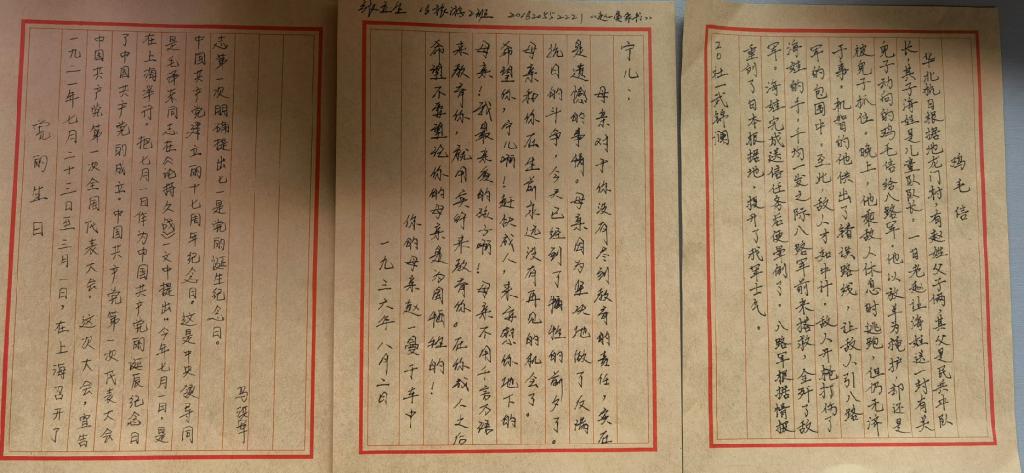 党的生日
一九二一年七月二十三日至三月一日，在上海召开了
中国共产党第一次全国代表大会. 这次大会，宣告
了中国共产党的成立。中国共产党第一次代表大会
在上海举行。把七月一日作为中国共产党的诞辰纪念日
是毛泽东同志在《论持久战》一文中提出："今年七月一日，是
中国共产党建立的十七周年纪念日。这是中央领导同
志第一次明确提出七一是党的诞生纪念日。
张立生 18旅游2班 《赵一曼家书》
宁儿：
母亲对于你没有尽到教育的责任，实在
是遗憾的事情。母亲因为坚决地做了反满
抗日的斗争，今天已经到了牺牲的前夕了。
母亲和你在生前永远没有再见的机会了。
希望你，宁儿啊！赶快成人，来安慰你地下的
母亲！我最亲爱的孩子啊！母亲不用千言万语
来教育你，就用实行来教育你。在你成人之后
希望不要忘记你的母亲是为国牺牲的！
你的母亲赵一曼于车中
一九三六年八月二日
鸡毛信
华北抗日根据地龙门村，有赵姓父子俩，其父是民兵中队
长，其子海娃是儿童队队长。一日老赵让海娃送一封有关
鬼子动向的鸡毛信给八路军，他以放羊为掩护却还是
被鬼子抓住。晚上，他乘敌人休息时逃跑，但仍无济
于事。机智的他使出了错误路线，让敌人引八路
军的包围中，至此，敌人才知中计，敌人开枪打伤了
海娃的手，千均一发之际八路军前来搭救，全歼了敌
军。海娃完成送信任务后便晕倒了。八路军根据情报
重创了日本根据地，提升了我军士气。